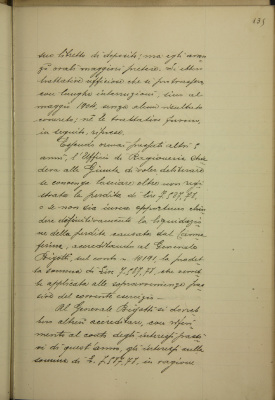 135
suo libretto di deposito; ma egli avan-
zò avali maggiori pretese, ed alle
trattative ufficiose che si protrassero
con lunghe interruzioni, fino al
maggio 1904, senza alcun risultato
concreto; nè le trattative furono,
in seguito, riprese.
Essendo ormai passati altri 2
anni, l'Ufficio di Ragioneria chie-
deva alla Giunta di voler deliberare
se convenga lasciare oltre non regi-
strata la perdita di lire 7.587,78,
o se non sia invece opportuno chiu-
dere definitivamente la liquidazio-
ne della perdita causata dal
accreditando al Generale
Bigotti, sul conto N. 10191, la predet-
ta somma di Lire 7.587,78, che
applicata alle sopravvenienze pas-
sive del corrente esercizio.
Al Generale Bigotti si dovreb-
bero altresì accreditare, con riferi-
mento al conto degli interessi passi-
vi di quest'anno, gli interessi sulla
somma di L. 7.587,78, in ragione